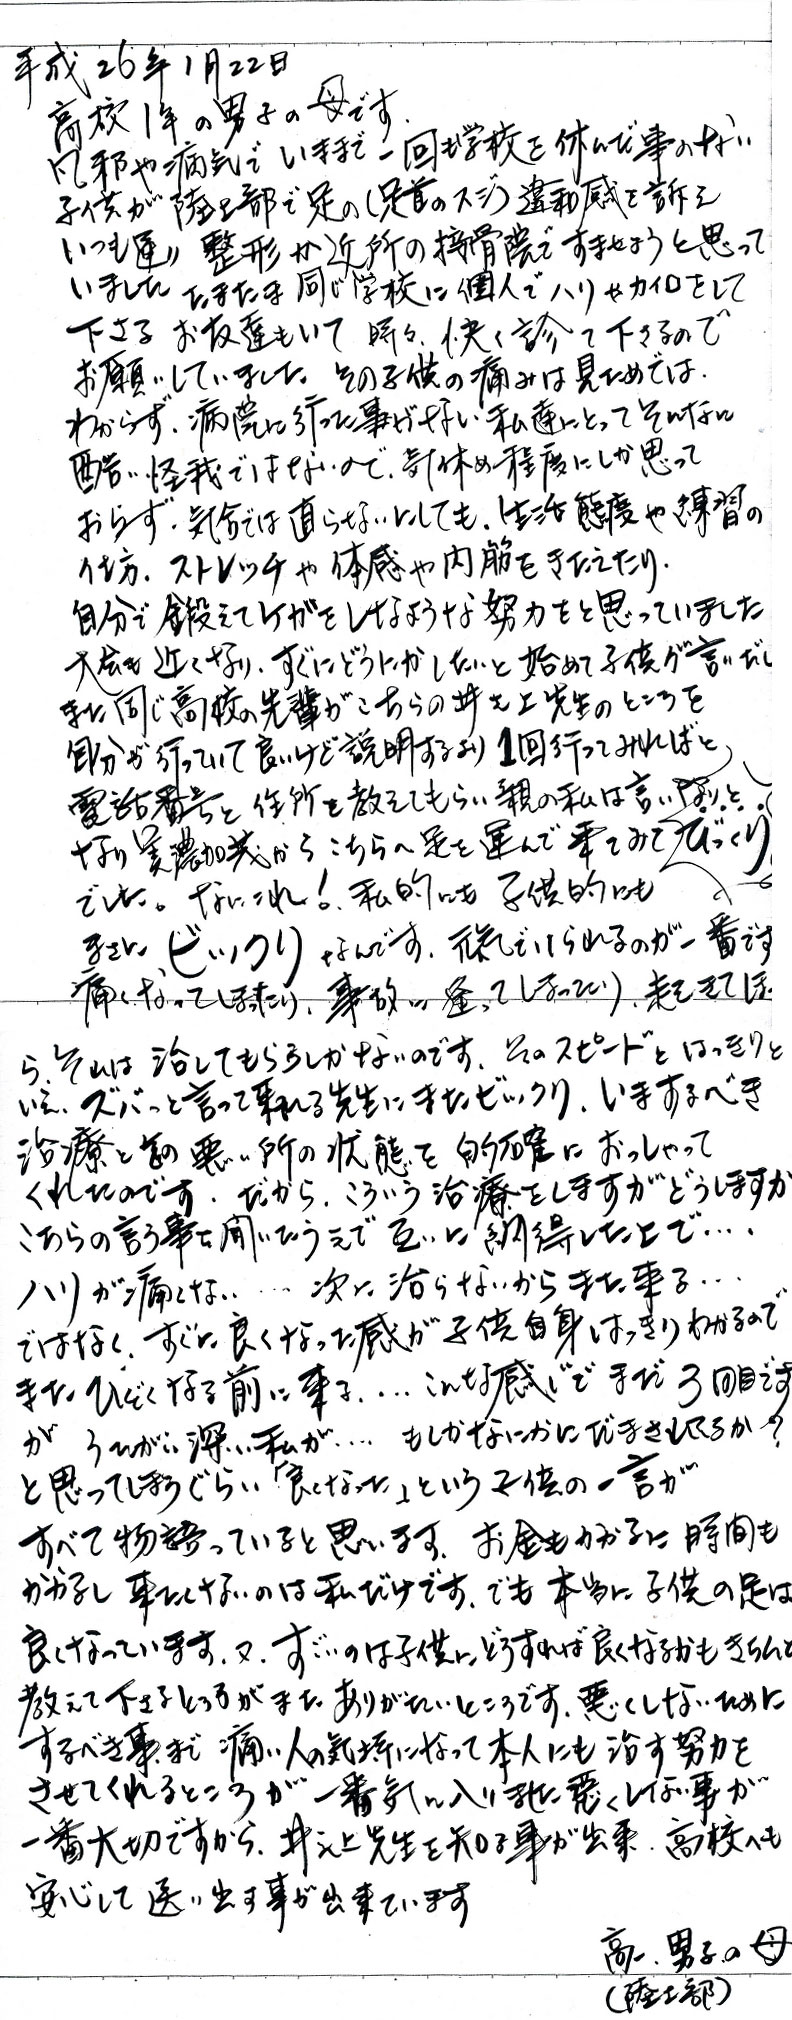 平成26年1月22日
高校1年の男子の母です.
風邪や病気でいままで一回も学校を休んだ事のない
子供が陸上部で足の(足首のスジ)違和感を訴え
いつも通り 整形か近所の接骨院ですませようと思って
いました たまたま同じ学校に個人でハリやカイロをして
下さる お友達もいて 時々、快く診て下さるので
お願いしていました。その子供の痛みは見ためでは.
わからず、病院に行った事がない私達にとってそんなに
酷い怪我ではないので、気休め程度にしか思って
おらず、気分では直らないにしても、生活態度や練習の
仕方、ストレッチや体感や内筋をきたえたり.
自分で鍛えてケガをしなような努力をと思っていました
大会も近くなり、すぐにどうにかしたいと始めて子供が言いだし
また同じ高校の先輩がこちらの井之上先生のところを
自分が行っていて良いけど説明するより1回行ってみればと
電話番号と住所を教えてもらい親の私は言いなりと
なり美濃加茂からこちらへ足を運んで来てみてびっくり
でした。なにこれ!、私的にも子供的にも
まさにビックリなんです、元気でいられるのが一番です
痛くなってしまったり、事故に逢ってしまったり、走
ら、それは治してもらうしかないのです、そのスピードとはっきりと
いえ、ズバっと言って来れる先生にまたビックリ、いますべき
治療と 悪い所の状態を的確におっしゃって
くれたのです、だから、こういう治療をしますがどうしますか
こちらの言う事を聞いたうえで互いに納得した上で….
ハリが痛くない… 次に治らないからまた来る…
ではなく、すぐに良くなった感が子供自身はっきりわかるので
またひどくなる前に来る、…こんな感じでまだ3回目です
が うたがい深い私が… もしかなにかにだまされてるか?
と思ってしまうぐらい「良くなった」という子供の一言が
すべて物語っていると思います、お金もかかるに時間も
かかるし来たくないのは私だけです、でも本当に子供の足は
良くなっています、又、すごいのは子供にどうすれば良くなるかもきちんと
教えて下さるところがまたありがたいところです、悪くしないために
するべき事、まで痛い人の気持になって本人にも治す努力を
させてくれるところが一番気に入りました悪くしない事が
一番大切ですから、井之上先生を知る事が出来、高校へも
安心して送り出す事が出来ています
高一、男子の母
(陸上部)